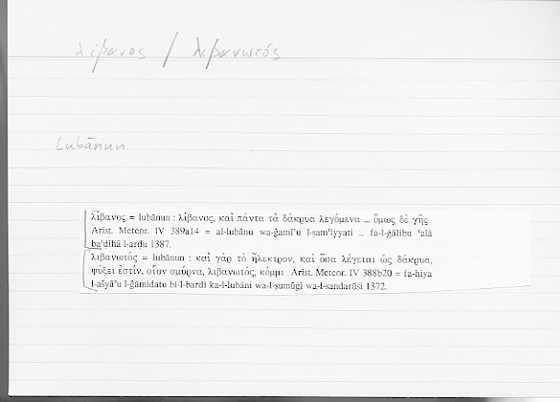 λίβανος / λιβανωτός
Lubānun
λίβανος = lubānun : λίβανος, καὶ πάντα τὰ δάκρυα λεγόμενα ... ὅμως δὲ γῆς
Arist. Meteor. IV 389a14 = al-lubānu wa-ǧamī‘u l-ṣam‘iyyati ... fa-l-ġālibu ‘alā
ba‘ḍihā l-arḍu 1387.
λιβανωτός = lubānun : καὶ γὰρ τὸ ἤλεκτρον, καὶ ὅσα λέγεται ὡς δάκρυα,
ψύξει ἐστίν, οἷον σμύρνα, λιβανωτός, κόμμι Arist. Meteor. IV 388b20 = fa-hiya
l-ašyā’u l-ǧāmidatu bi-l-bardi ka-l-lubāni wa-l-ṣumūġi wa-l-sandarūsi 1372.